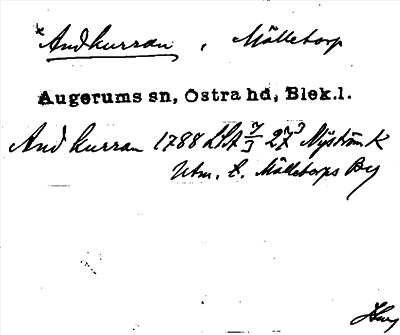 *Andkurran, Mölletorp
Augerums sn, Östra hd, Blek.l.
Andkurran 1788 LSA 27 Nyström K
Utm. t. Mölletorps By